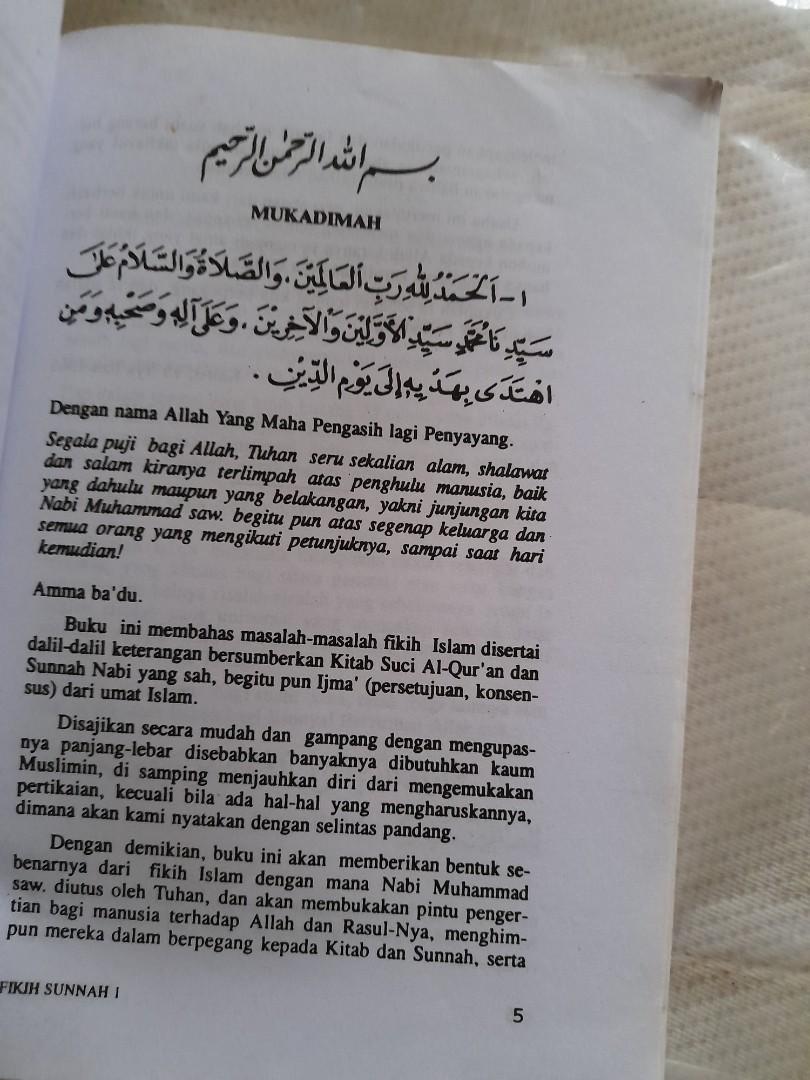 بسم الله الرحمن الرحيم
MUKADIMAH
١ - اَلْحَمْدُ لِلّٰهِ رَبِّ الْعَالَمِيْنَ . وَالصَّلَاةُ وَالسَّلَامُ عَلَىٰ
سَيِّدِنَا مُحَمَّدٍ سَيِّدِ الْأَوَّلِيْنَ وَالْآخِرِيْنَ . وَعَلَى آلِهِ وَصَحْبِهِ وَمَنِ
اهْتَدَى بِهَدْيِهِ إِلَى يَوْمِ الدِّيْنِ .
Dengan nama Allah Yang Maha Pengasih lagi Penyayang.
Segala puji bagi Allah, Tuhan seru sekalian alam, shalawat
dan salam kiranya terlimpah atas penghulu manusia, baik
yang dahulu maupun yang belakangan, yakni junjungan kita
Nabi Muhammad saw. begitu pun atas segenap keluarga dan
semua orang yang mengikuti petunjuknya, sampai saat hari
kemudian!
Amma ba'du.
Buku ini membahas masalah-masalah fikih Islam disertai
dalil-dalil keterangan bersumberkan Kitab Suci Al-Qur'an dan
Sunnah Nabi yang sah, begitu pun Ijma' (persetujuan, konsen-
sus) dari umat Islam.
Disajikan secara mudah dan gampang dengan mengupas-
nya panjang-lebar disebabkan banyaknya dibutuhkan kaum
Muslimin, di samping menjauhkan diri dari mengemukakan
pertikaian, kecuali bila ada hal-hal yang mengharuskannya,
dimana akan kami nyatakan dengan selintas pandang.
Dengan demikian, buku ini akan memberikan bentuk se-
benarnya dari fikih Islam dengan mana Nabi Muhammad
saw. diutus oleh Tuhan, dan akan membukakan pintu penger-
tian bagi manusia terhadap Allah dan Rasul-Nya, menghim-
pun mereka dalam berpegang kepada Kitab dan Sunnah, serta
FIKIH SUNNAH 1
5